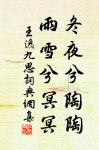 冬夜兮陶陶
雨雪兮冥冥
王逸九思詞典網集